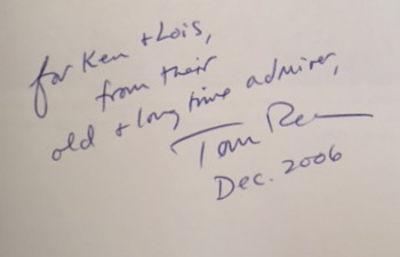 for Ken + Lois,
from their
old + long time admirer,
Tom
Dec. 2006